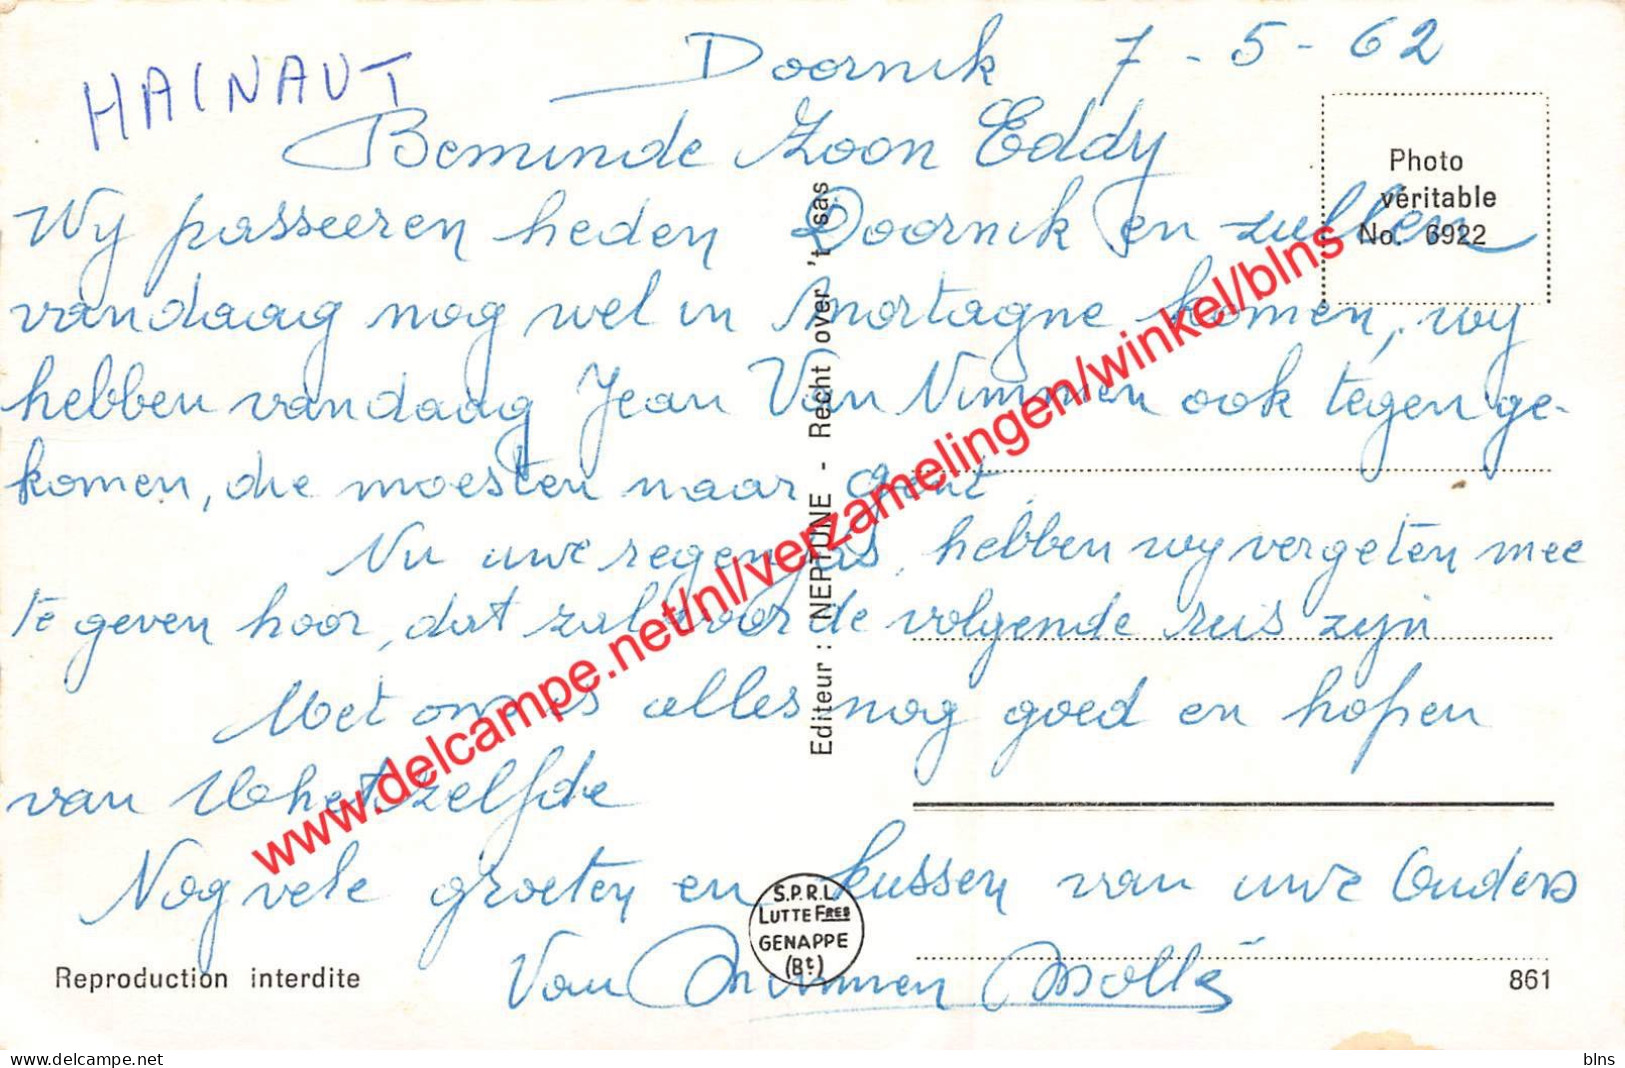 HAINAUT
Doornik 7-5-62
Beminde Zoon Eddy
Wy passeeren heden Doornik en zullen
vandaag nog wel in Mortagne komen, wy
hebben vandaag Jean Van Nimmen ook tegen ge-
komen, die moesten naar Gent.
Nu uwe regenjas, hebben wy vergeten mee
te geven hoor, dat zal voor de volgende reis zijn
Met ons is alles nog goed en hopen
van U hetzelfde
Nog vele groeten en kussen van uwe Ouders
Van Nimmen Mollé
Photo
véritable
No. 6922
Editeur : NEPTUNE - Recht over 't sas
S.P.R.L.
LUTTE FRES
GENAPPE
(Bt.)
Reproduction interdite
861
www.delcampe.net/nl/verzamelingen/winkel/blns
www.delcampe.net
blns